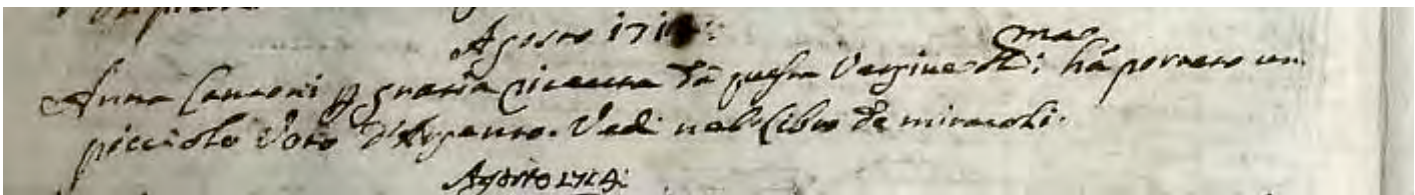 Agosto 171
Anna Canzoni p gratia riceuuta da questa Vergine SS: ma hà portato un
picciolo Voto d'Argento. Vedi nel libro de miracoli.
Agosto 1714: